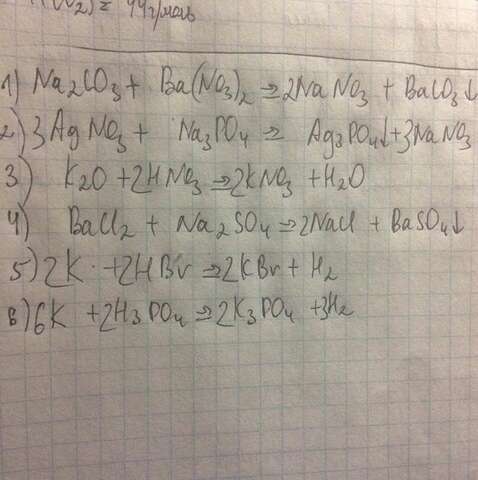 M(CO₂) = 44г/моль
1) Na₂CO₃ + Ba(NO₃)₂ ⇒ 2NaNO₃ + BaCO₃↓
2) 3AgNO₃ + Na₃PO₄ = Ag₃PO₄↓ + 3NaNO₃
3) K₂O + 2HNO₃ ⇒ 2KNO₃ + H₂O
4) BaCl₂ + Na₂SO₄ ⇒ 2NaCl + BaSO₄↓
5) 2K + 2HBr ⇒ 2KBr + H₂
6) 6K + 2H₃PO₄ ⇒ 2K₃PO₄ + 3H₂